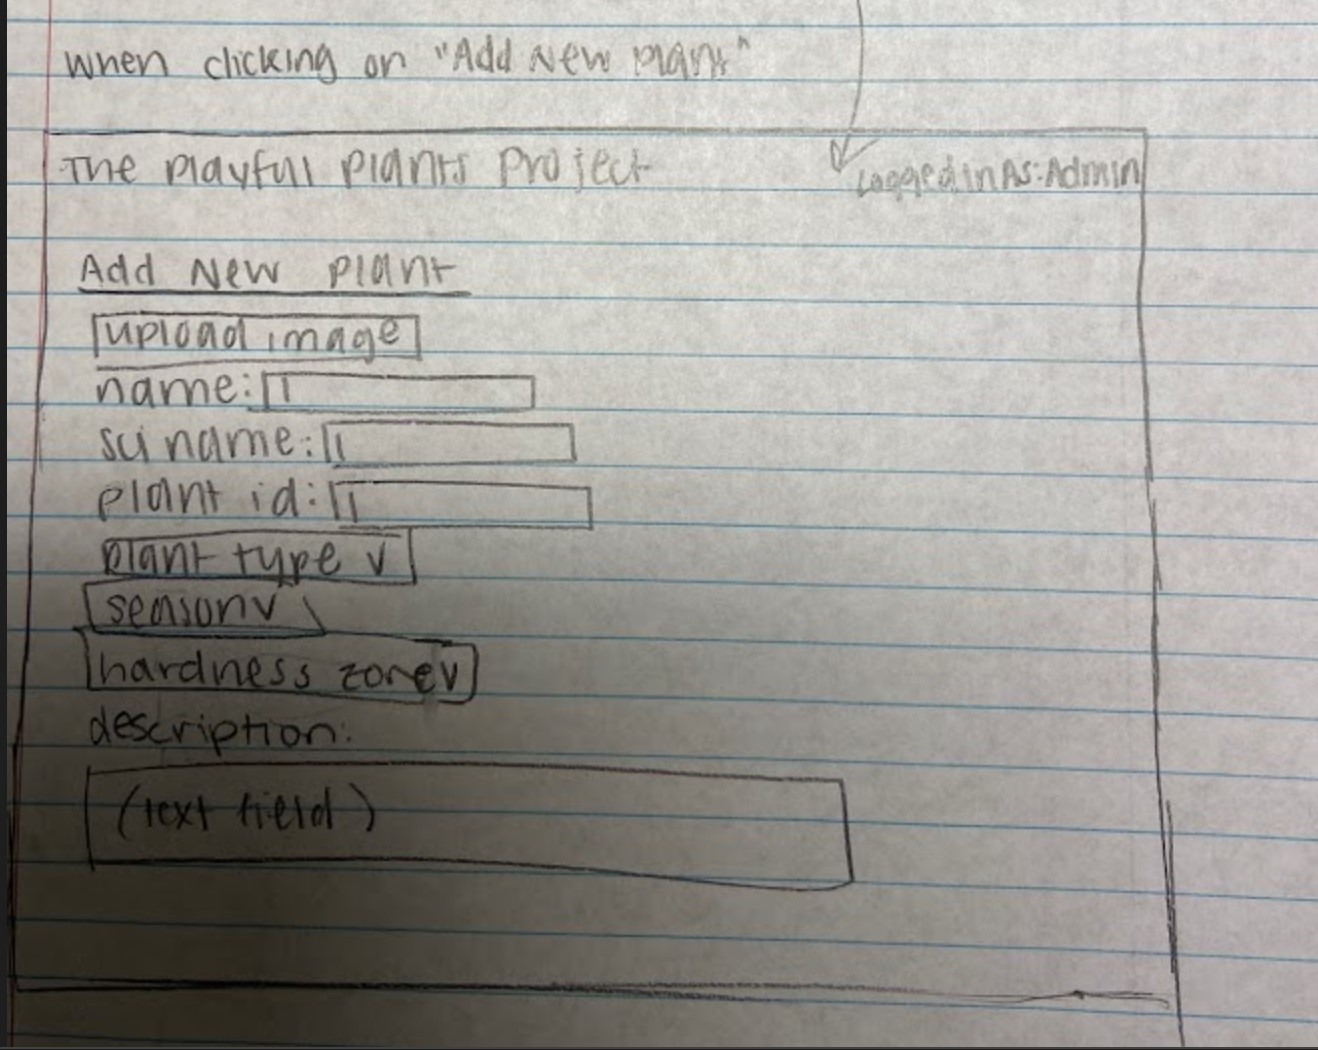 When clicking on "Add New Plant"
The Playfull Plants Project
Logged in As: Admin
Add New Plant
upload image
name:
sci name:
plant id:
plant type v
season v
hardness zone v
description:
(text field)